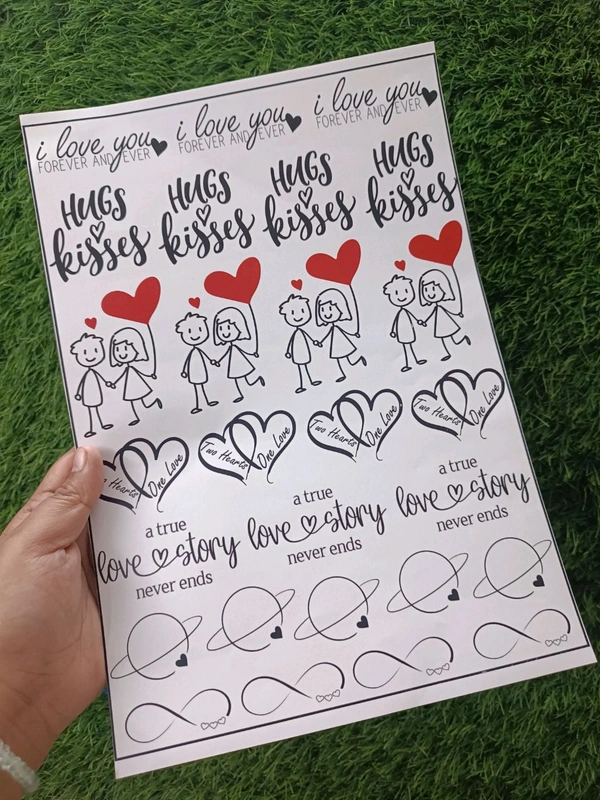 i love you i love you i love you
FOREVER AND EVER FOREVER AND EVER FOREVER AND EVER
HUGS HUGS HUGS HUGS
kisses kisses kisses kisses
Two Hearts One Love Two Hearts One Love Two Hearts One Love Two Hearts One Love
a true a true a true
love story love story love story
never ends never ends never ends